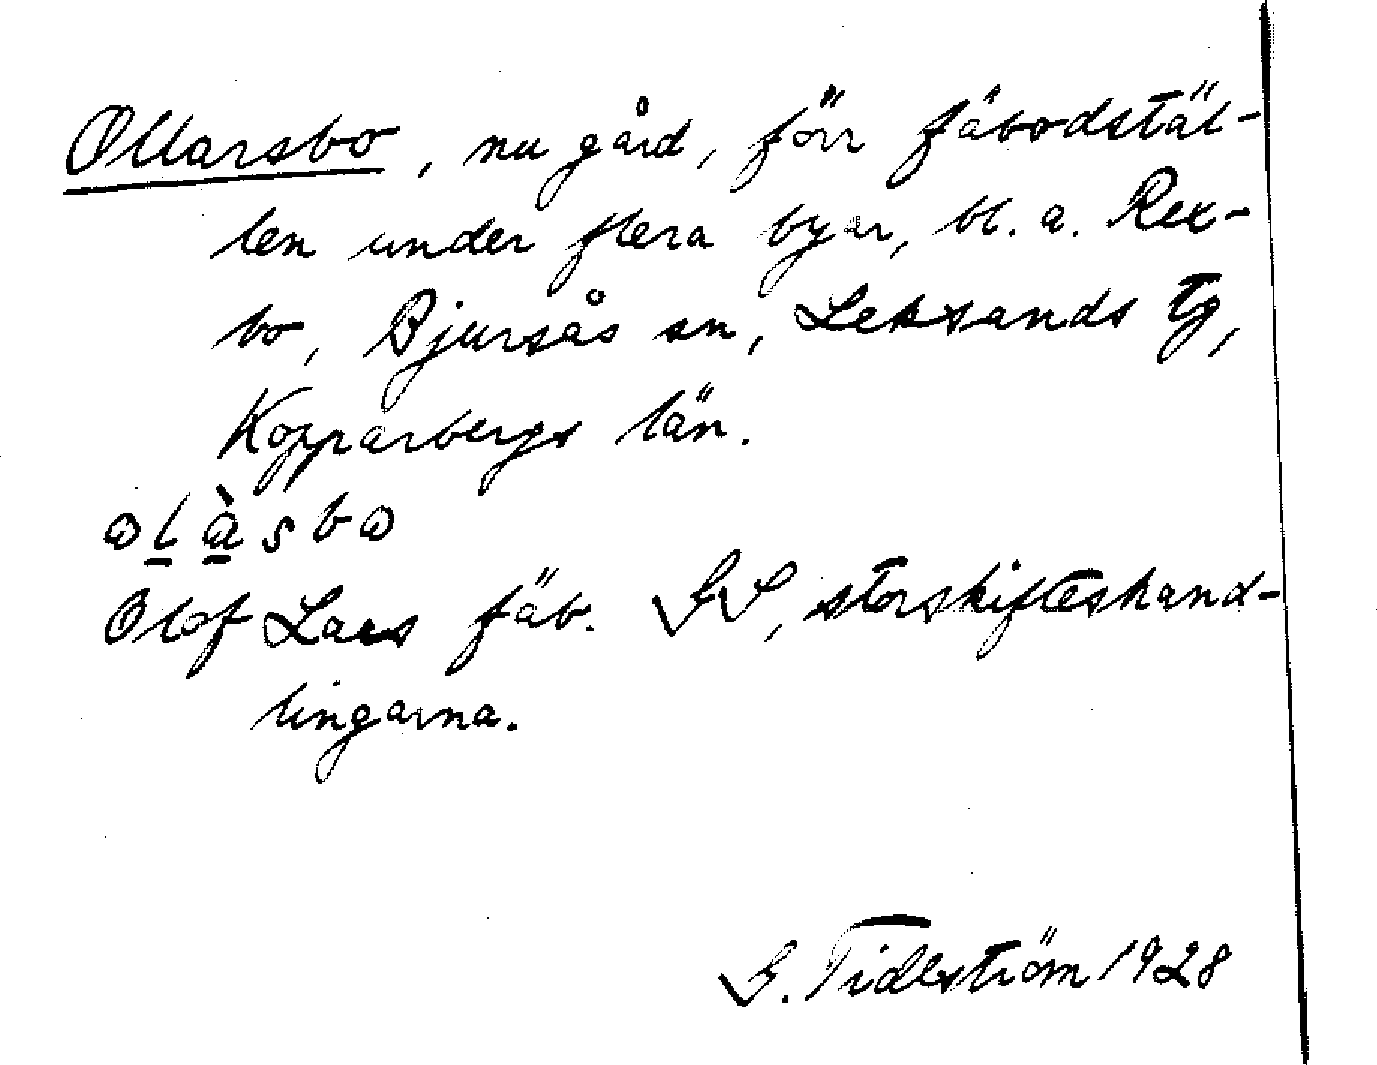 Ollarsbo, nu gård, förr fäbodstäl-
len under flera byar, bl. a. Rex-
bo, Bjursås sn, Leksands tg,
Kopparbergs län.
olàsbo
Olof Lars fäb. GS, storskifteshand-
lingarna.
G. Tidström 1928